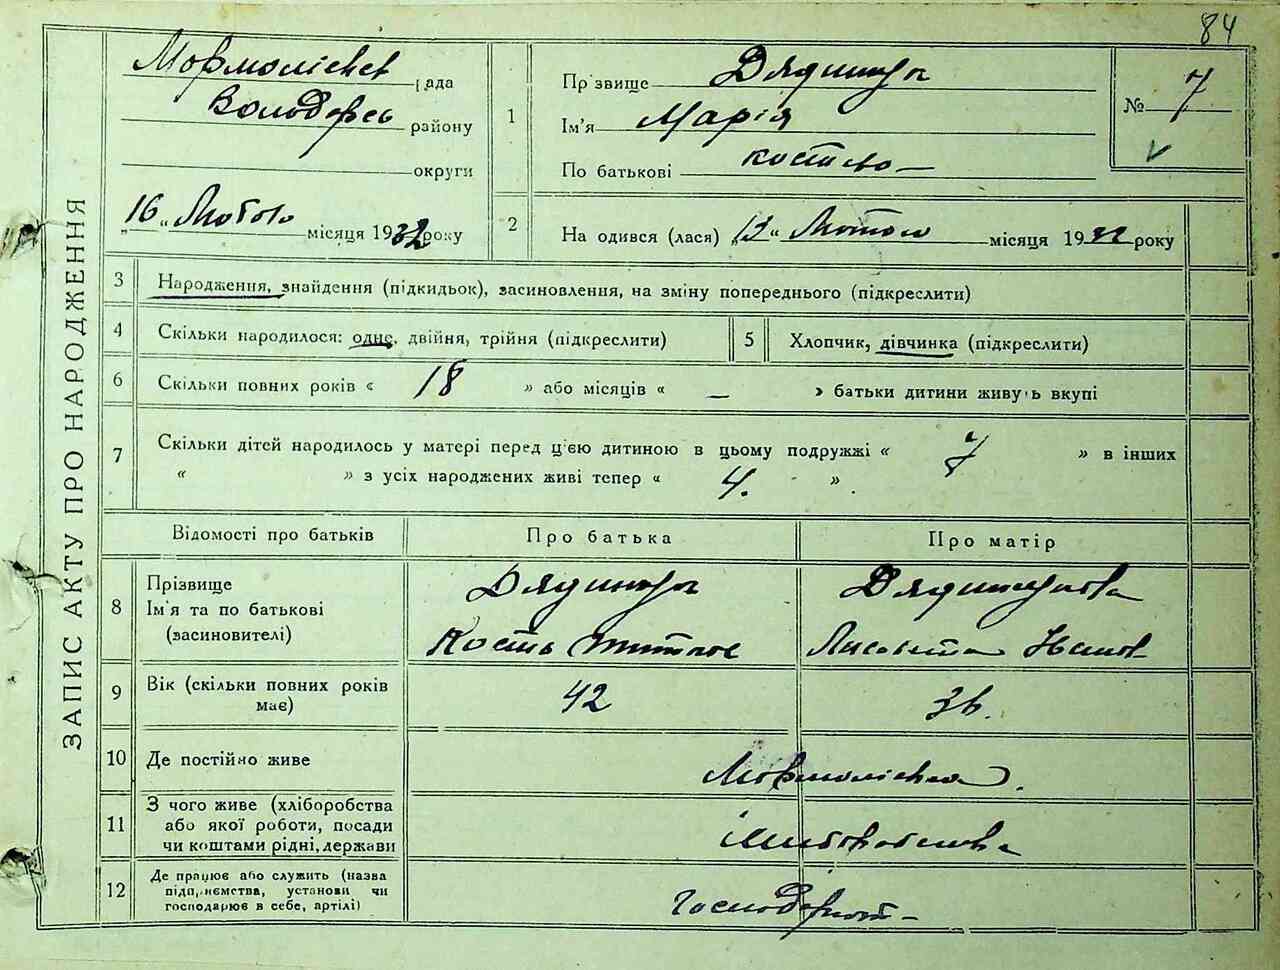 84
ЗАПИС АКТУ ПРО НАРОДЖЕННЯ
Мормолієвсь рада
Володарсь району
округи
"16" Лютого місяця 1932 року
1 Прізвище Дядишур
Ім'я Марія
По батькові костьев
№ 7
2 Народився (лася) "13" Лютого місяця 1932 року
3 Народження, знайдення (підкидьок), засиновлення, на зміну попереднього (підкреслити)
4 Скільки народилося: одне, двійня, трійня (підкреслити)
5 Хлопчик, дівчинка (підкреслити)
6 Скільки повних років « 18 » або місяців « — » батьки дитини живуть вкупі
7 Скільки дітей народилось у матері перед цією дитиною в цьому подружжі « 7 » в інших
« » з усіх народжених живі тепер « 4. »
Відомості про батьків Про батька Про матір
8 Прізвище
Ім'я та по батькові
(засиновителі)
Кость Титов
Іванов
9 Вік (скільки повних років
має)
42
36.
10 Де постійно живе
11 З чого живе (хліборобства
або якої роботи, посади
чи коштами рідні, держави
12 Де працює або служить (назва
підприємства, установи чи
господарює в себе, артілі)